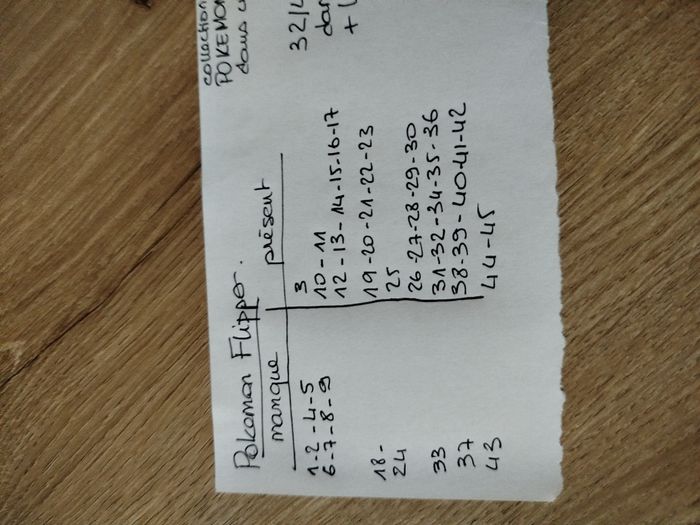 Pokemon Flipper.
manque
1-2-4-5
6-7-8-9
18-
24
33
37
43
présent
3
10-11
12-13-14-15-16-17
19-20-21-22-23
25
26-27-28-29-30
31-32-34-35-36
38-39-40-41-42
44-45
collection
POKEMON
dans